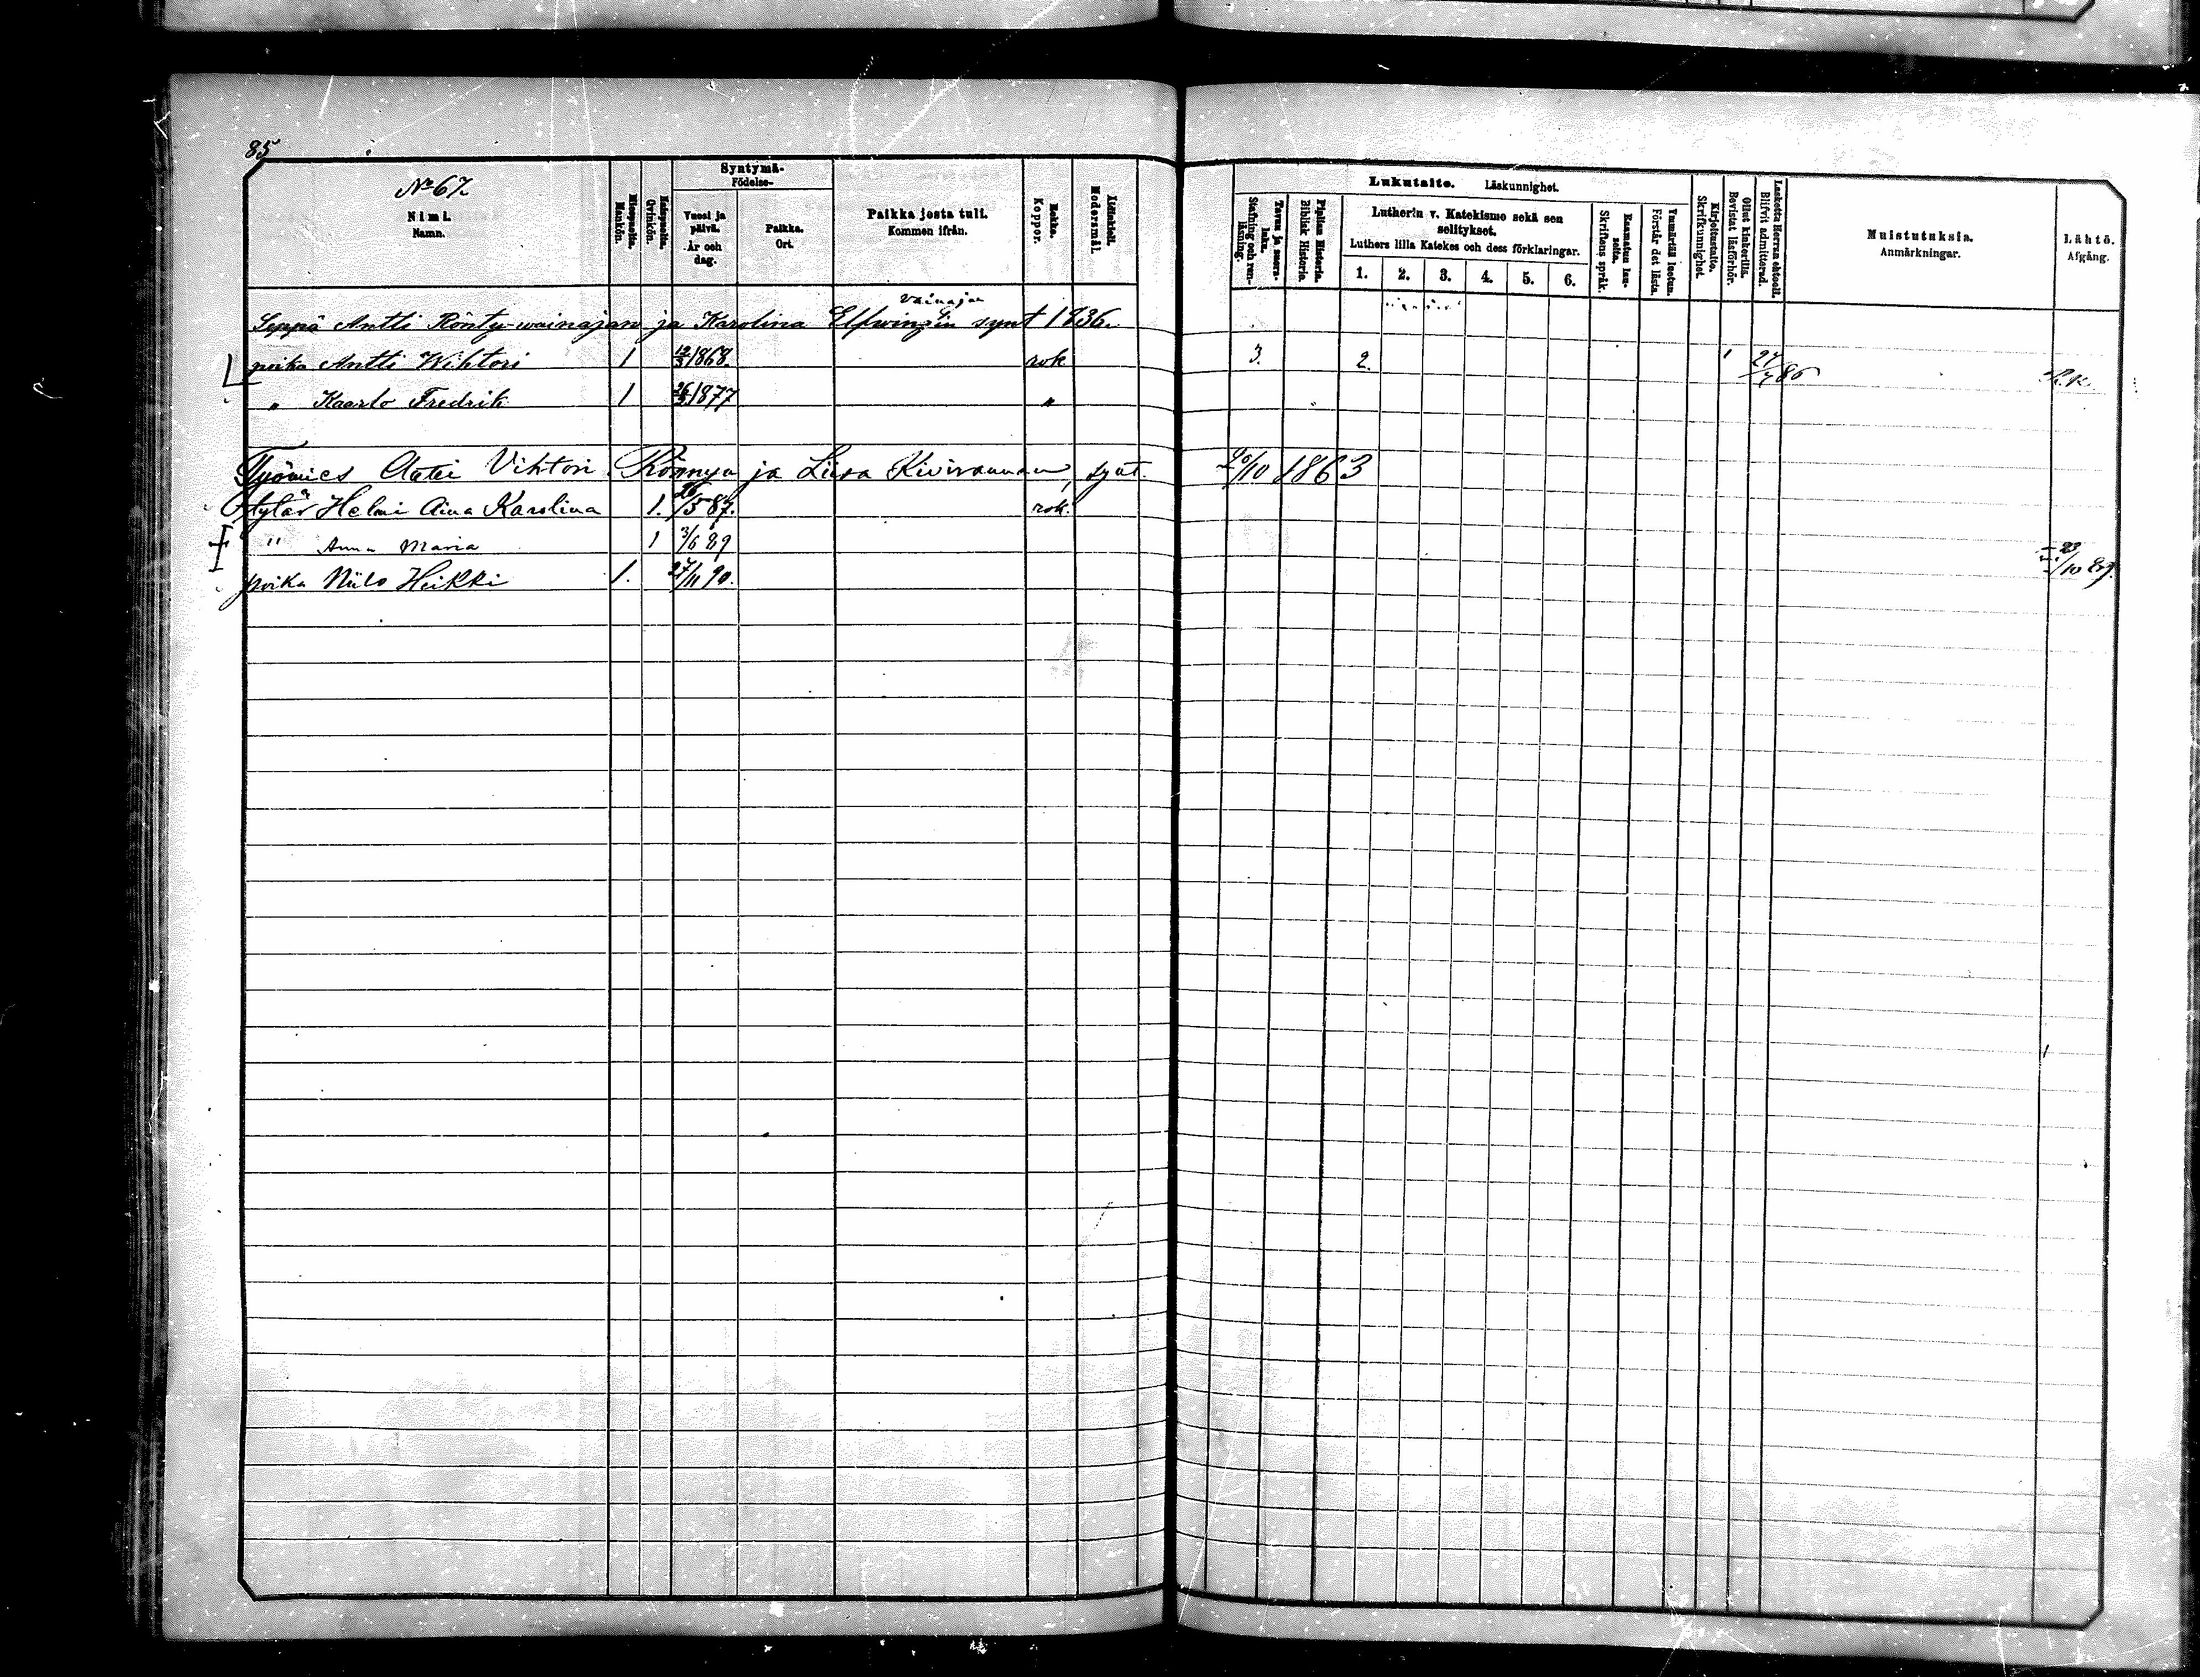 85
№ 67.
Nimi.
Namn.
Miespuolia.
Mankön.
Naispuolia.
Qvinkön.
Syntymä-
Födelse-
Vuosi ja päivä.
År och dag.
Paikka.
Ort.
Paikka josta tuli.
Kommen ifrån.
Rokko.
Koppor.
Äidinkieli.
Modersmål.
Lukutaito. Läskunnighet.
Tavuu ja suora-luku.
Stafning och ren-läsning.
Piplian Historia.
Biblisk Historia.
Lutherin v. Katekismo sekä sen selitykset.
Luthers lilla Katekes och dess förklaringar.
1. 2. 3. 4. 5. 6.
Raamatun lau-seita.
Skriftens språk.
Ymmärtää luetun.
Förstår det lästa.
Kirjoitustaito.
Skrifkunnighet.
Ollut kinkerillä.
Bevistat läsförhör.
Laskettu Herran ehtool.
Blifvit admitterad.
Muistutuksia.
Anmärkningar.
Lähtö.
Afgång.
vainajan
Seppä Antti Rönty-wainajan ja Karolina Elfwingin synt 1836.
poika Antti Wihtori 1 12/3 1868. rok 3. 2. 1 27/7 86 R.K.
" Kaarlo Fredrik 1 26/3 1877 "
Työmies Antti Vihtori Rönnyn ja Liisa Kivirannan, synt. 20/10 1863
tytär Helmi Aina Karolina 1. 26/5 87. rok.
" Anna Maria 1 3/6 89 23/10 89.
poika Niilo Heikki 1. 27/11 90.